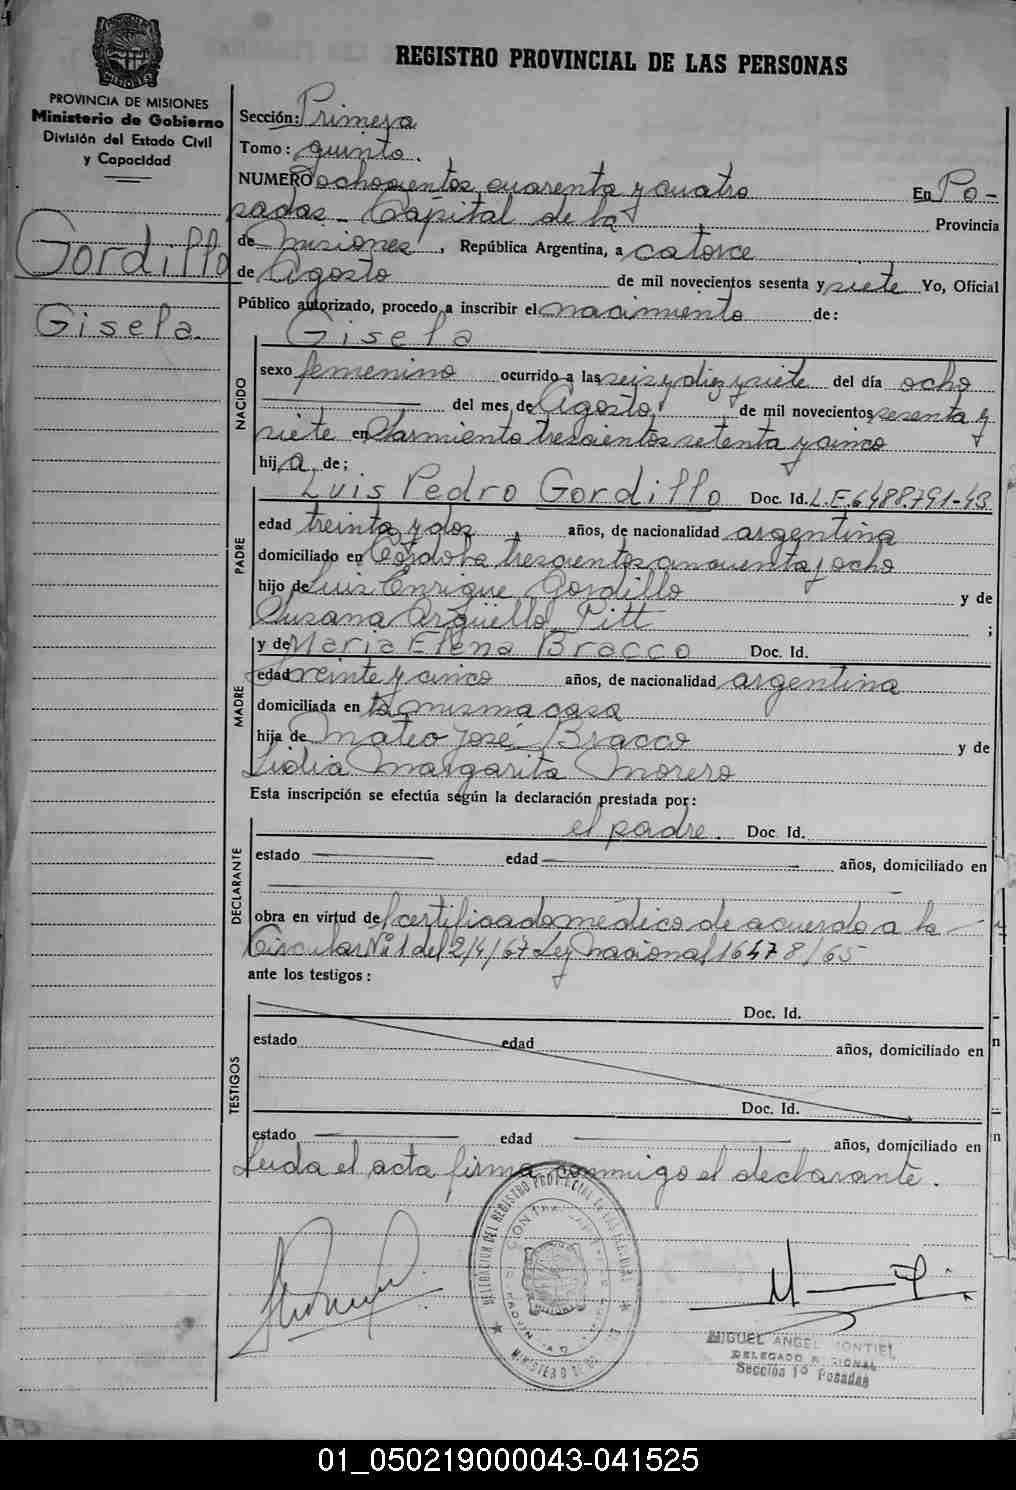 PROVINCIA DE MISIONES
Ministerio de Gobierno
División del Estado Civil
y Capacidad
Gordillo
Gisela.
REGISTRO PROVINCIAL DE LAS PERSONAS
Sección: Primera
Tomo: quinto.
NUMERO ochocientos cuarenta y cuatro En Po-
sadas - Capital de la Provincia
de Misiones, República Argentina, a catorce
de Agosto de mil novecientos sesenta y siete Yo, Oficial
Público autorizado, procedo a inscribir el nacimiento de:
Gisela
NACIDO
sexo femenino ocurrido a las seis y diez y siete del día ocho
del mes de Agosto, de mil novecientos sesenta y
siete en Sarmiento trescientos setenta y cinco
hij a de;
PADRE
Luis Pedro Gordillo Doc. Id. L.E. 6488.791-43
edad treinta y dos años, de nacionalidad argentina
domiciliado en Córdoba trescientos cincuenta y ocho
hijo de Luis Enrique Gordillo y de
Susana Argüello Pitt ;
MADRE
y de Maria Elena Bracco Doc. Id.
edad veinte y cinco años, de nacionalidad argentina
domiciliada en la misma casa
hija de Mateo José Bracco y de
Lidia Margarita Morero
Esta inscripción se efectúa según la declaración prestada por:
DECLARANTE
el padre. Doc. Id.
estado edad años, domiciliado en
obra en virtud de certificado médico de acuerdo a la
Circular Nº 1 del 2/4/67 Ley Nacional 16478/65
ante los testigos:
TESTIGOS
Doc. Id.
estado edad años, domiciliado en
Doc. Id.
estado edad años, domiciliado en
Leida el acta firma conmigo el declarante.
DELEGACION DEL REGISTRO PROVINCIAL
MIGUEL ANGEL MONTIEL
DELEGADO REGIONAL
Sección 1º Posadas
01_050219000043-041525